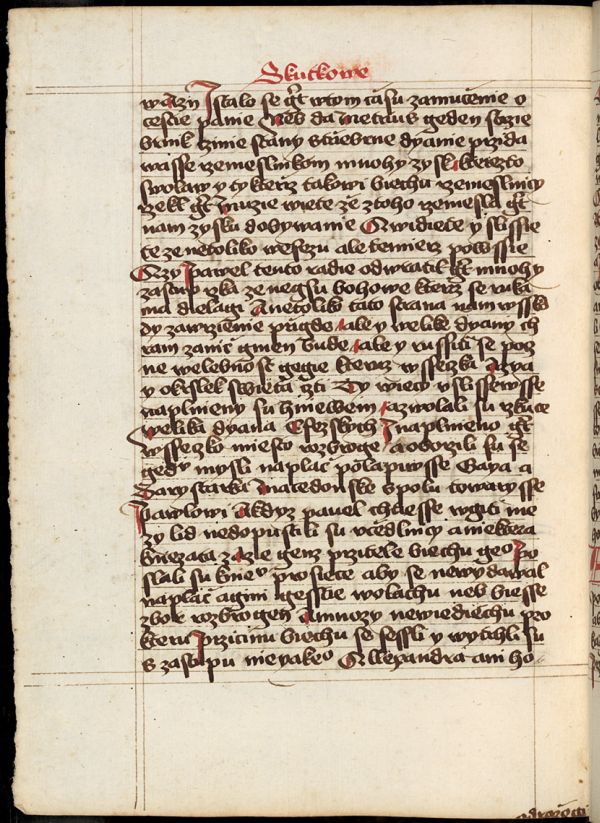 Skutkowe
w azij I stalo se gt wtom času zamucenie o
cestie panie Neb da Metrius geden stzie
brnik cinie stany strziebrne dyanie przida
wasse rzemeslnikom mnohy zysk kterezto
swolaw y ty kterziz takowi biechu rzemeslnicy
rzekl gt muzie wiete ze ztoho rzemesla gt
nam zysku dobywanie A widiete y slyssie
te ze netoliko w efezu ale temierz po wssie
Azy pawel tento radie odwratil gt mnohy
zastup rzka ze negsu bohowe kterziz se ruka
ma dielagi A netoliko tato strana nam w ssko
dy zawrzienie prigde ale y welike dyany ch
ram zanic gmien bude ale y russiti se poc
ne welebnost gegie kteruz wssezka Azya
y okrslek swieta cti Ty wiecy uslissewsse
naplnieny su hniewem a zwolali su rzkuce
welika dyana Efezskych I naplnieno gt
wssezko miesto rozbroge a oborzili su se
gedny mysli na plac polapiwsse Gaya a
Aarystarka Macedonske spolu towarysse
pawlowi A kdyz pawel chtiesse wgiti me
zy lid nedopustili su ucedlnicy A niektera
kniezata z Azie genz przitele biechu geo po
slali su k niemu prosiece aby se newydawal
na plac a gini gesstie wolachu neb biesse
zbor rozbrogen A mnozy newiediechu pro
kteru przicinu biechu se sessli y wytahli su
s zastupu nieyakeo Allexandra ani ho